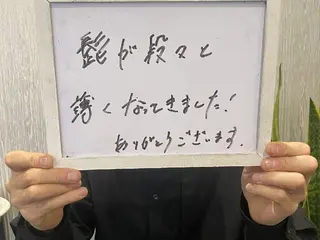 髭が段々と
薄くなってきました!
ありがとうございます.